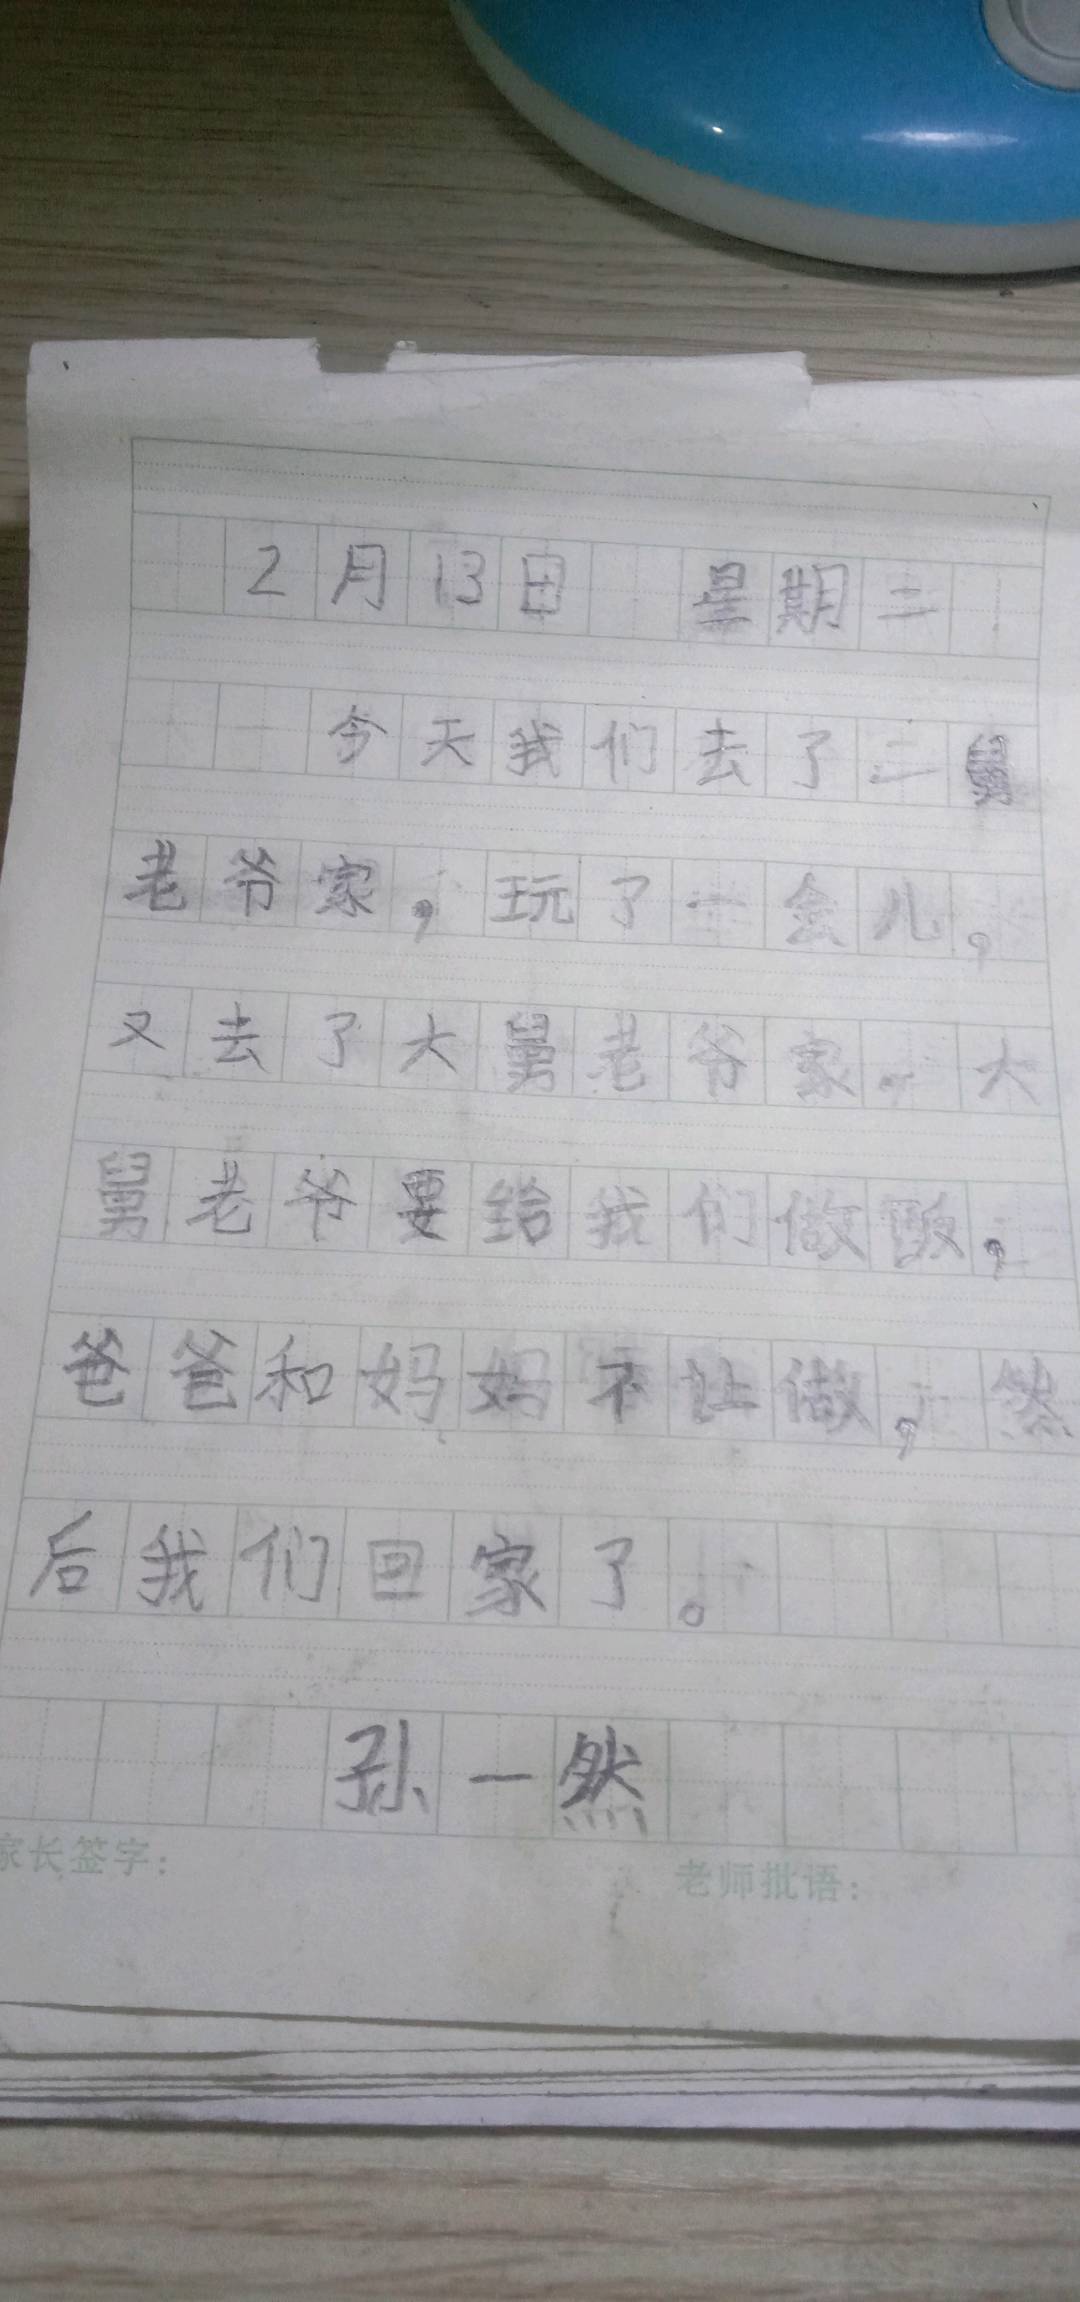 2月13日 星期二
今天我们去了二舅
老爷家，玩了一会儿，
又去了大舅老爷家。大
舅老爷要给我们做饭，
爸爸和妈妈不让做，然
后我们回家了。
孙一然
家长签字：
老师批语：